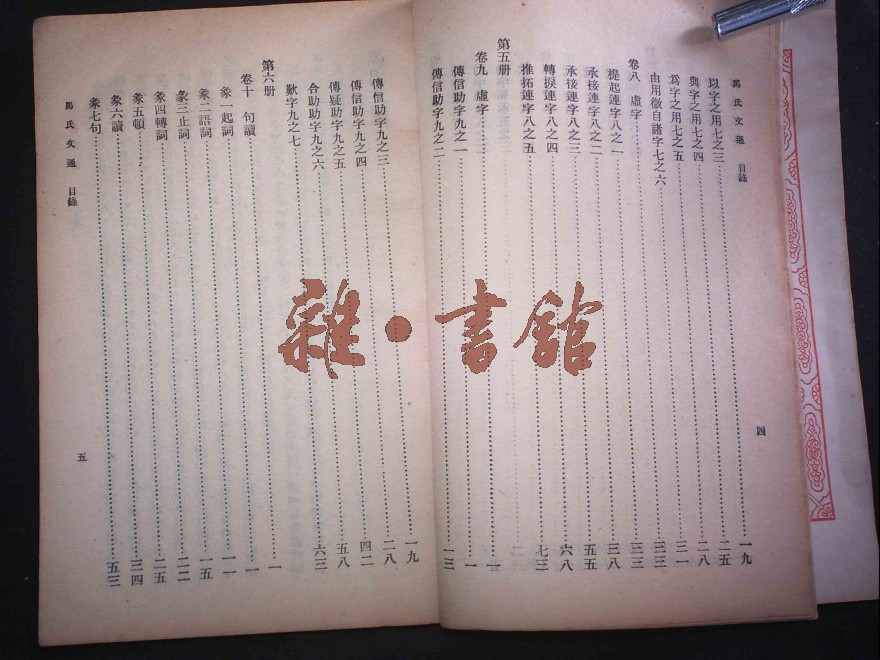 馬氏文通 目錄
以字之用七之三……一九
與字之用七之四……二五
爲字之用七之五……二八
由用微自諸字七之六……三一
卷八 虛字……三三
提起連字八之一……三三
承接連字八之二……三八
承接連字八之三……五五
轉捩連字八之四……六八
推拓連字八之五……七三
第五册
卷九 虛字……一
傳信助字九之一……一
傳信助字九之二……一三
四
傳信助字九之三……一九
傳信助字九之四……二八
傳疑助字九之五……四二
合助助字九之六……五八
歎字九之七……六三
第六册
卷十 句讀……一
象一起詞……一
象二語詞……一一
象三止詞……一五
象四轉詞……二二
象五頓……二五
象六讀……三四
象七句……五三
馬氏文通 目錄
五
雜·書館